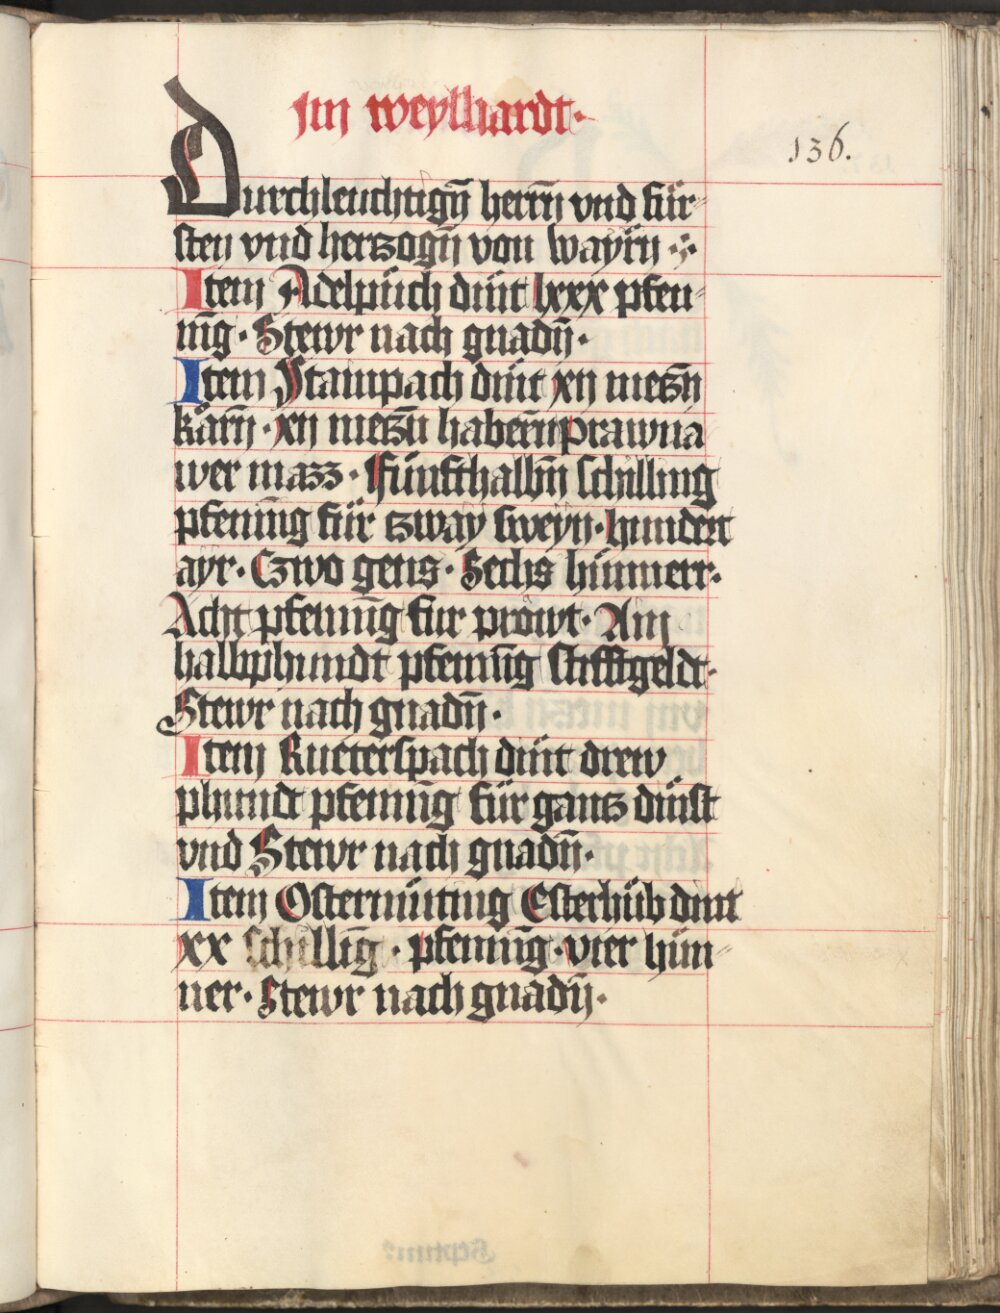 Jm weylhardt.
136.
Durchleuchtigñ herrñ vnd für-
sten vnd hertzogñ von Wayrñ
Item Adelpüch dint lxxx pfen-
nīg. Stewr nach gnadñ.
Item Stampach dint xij metzñ
kärñ. xij metzñ haberñ prawna
wer mazz. Fünfthalbñ schilling
pfennīg für tzway sweyn. hundert
ayr. Czwo gens. Sechs hünnerr.
Acht pfennīg für pröwt. Am
halbphundt pfennīg Stifftgeldt.
Stewr nach gnadñ.
Item Rueterspach dint drew
phundt pfennīg für gantz dinst
vnd Stewr nach gnadñ.
Item Ostermüting Esterhüb dint
xx schillīg. pfennīg. vier hün-
ner. Stewr nach gnadñ.